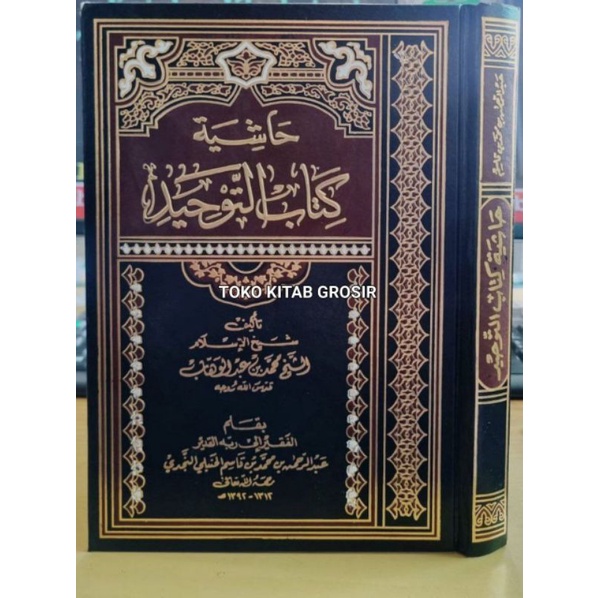 حاشية
كتاب التوحيد
TOKO KITAB GROSIR
تأليف
شيخ الإسلام
الشيخ محمد بن عبد الوهاب
قدس الله روحه
بقلم
الفقير إلى ربه القدير
عبد الرحمن بن محمد بن قاسم الحنبلي النجدي
رحمه الله تعالى
١٣١٢ - ١٣٩٢ هـ
عبد الرحمن بن محمد بن قاسم
حاشية كتاب التوحيد